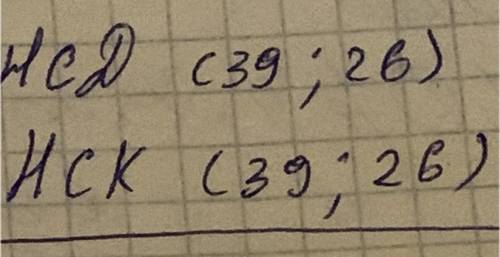 НСД (39; 26)
НСК (39; 26)